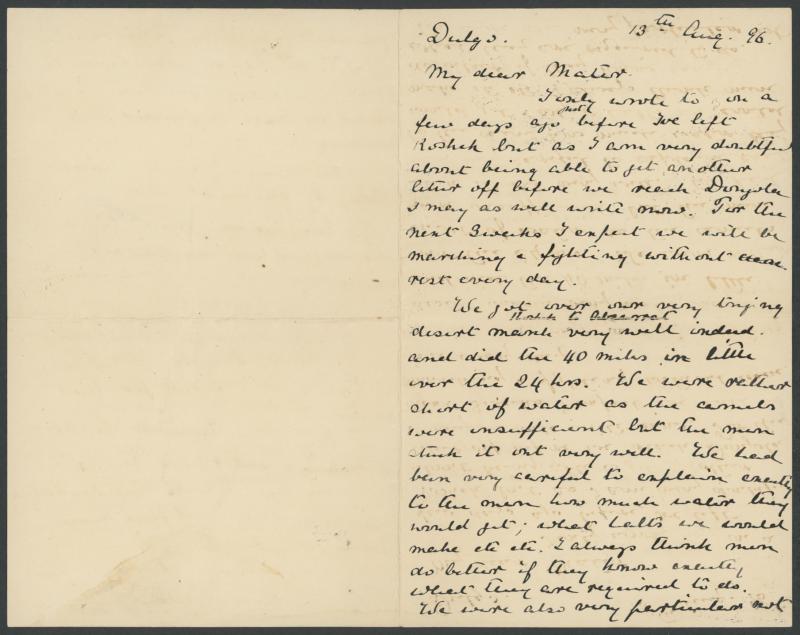 Dulgo. 13th Aug. 96.
My dear Mater.
I only wrote to on a
few days ago just before I've left
Kosheh but as I am very doubtful
about being able to get another
letter off before we reach Dongola
I may as well write now. For the
next 3 weeks I expect we will be
marching & fighting without
rest every day.
We got over our very trying
Kosheh to Absarrat
desert march very well indeed.
and did the 40 miles in little
over the 24 hrs. We were rather
short of water as the camels
were insufficient but the men
stuck it out very well. We had
been very careful to explain exactly
to the men how much water they
would get; what halts we would
make etc etc. I always think men
do better if they know exactly
what they are required to do.
We were also very particular not